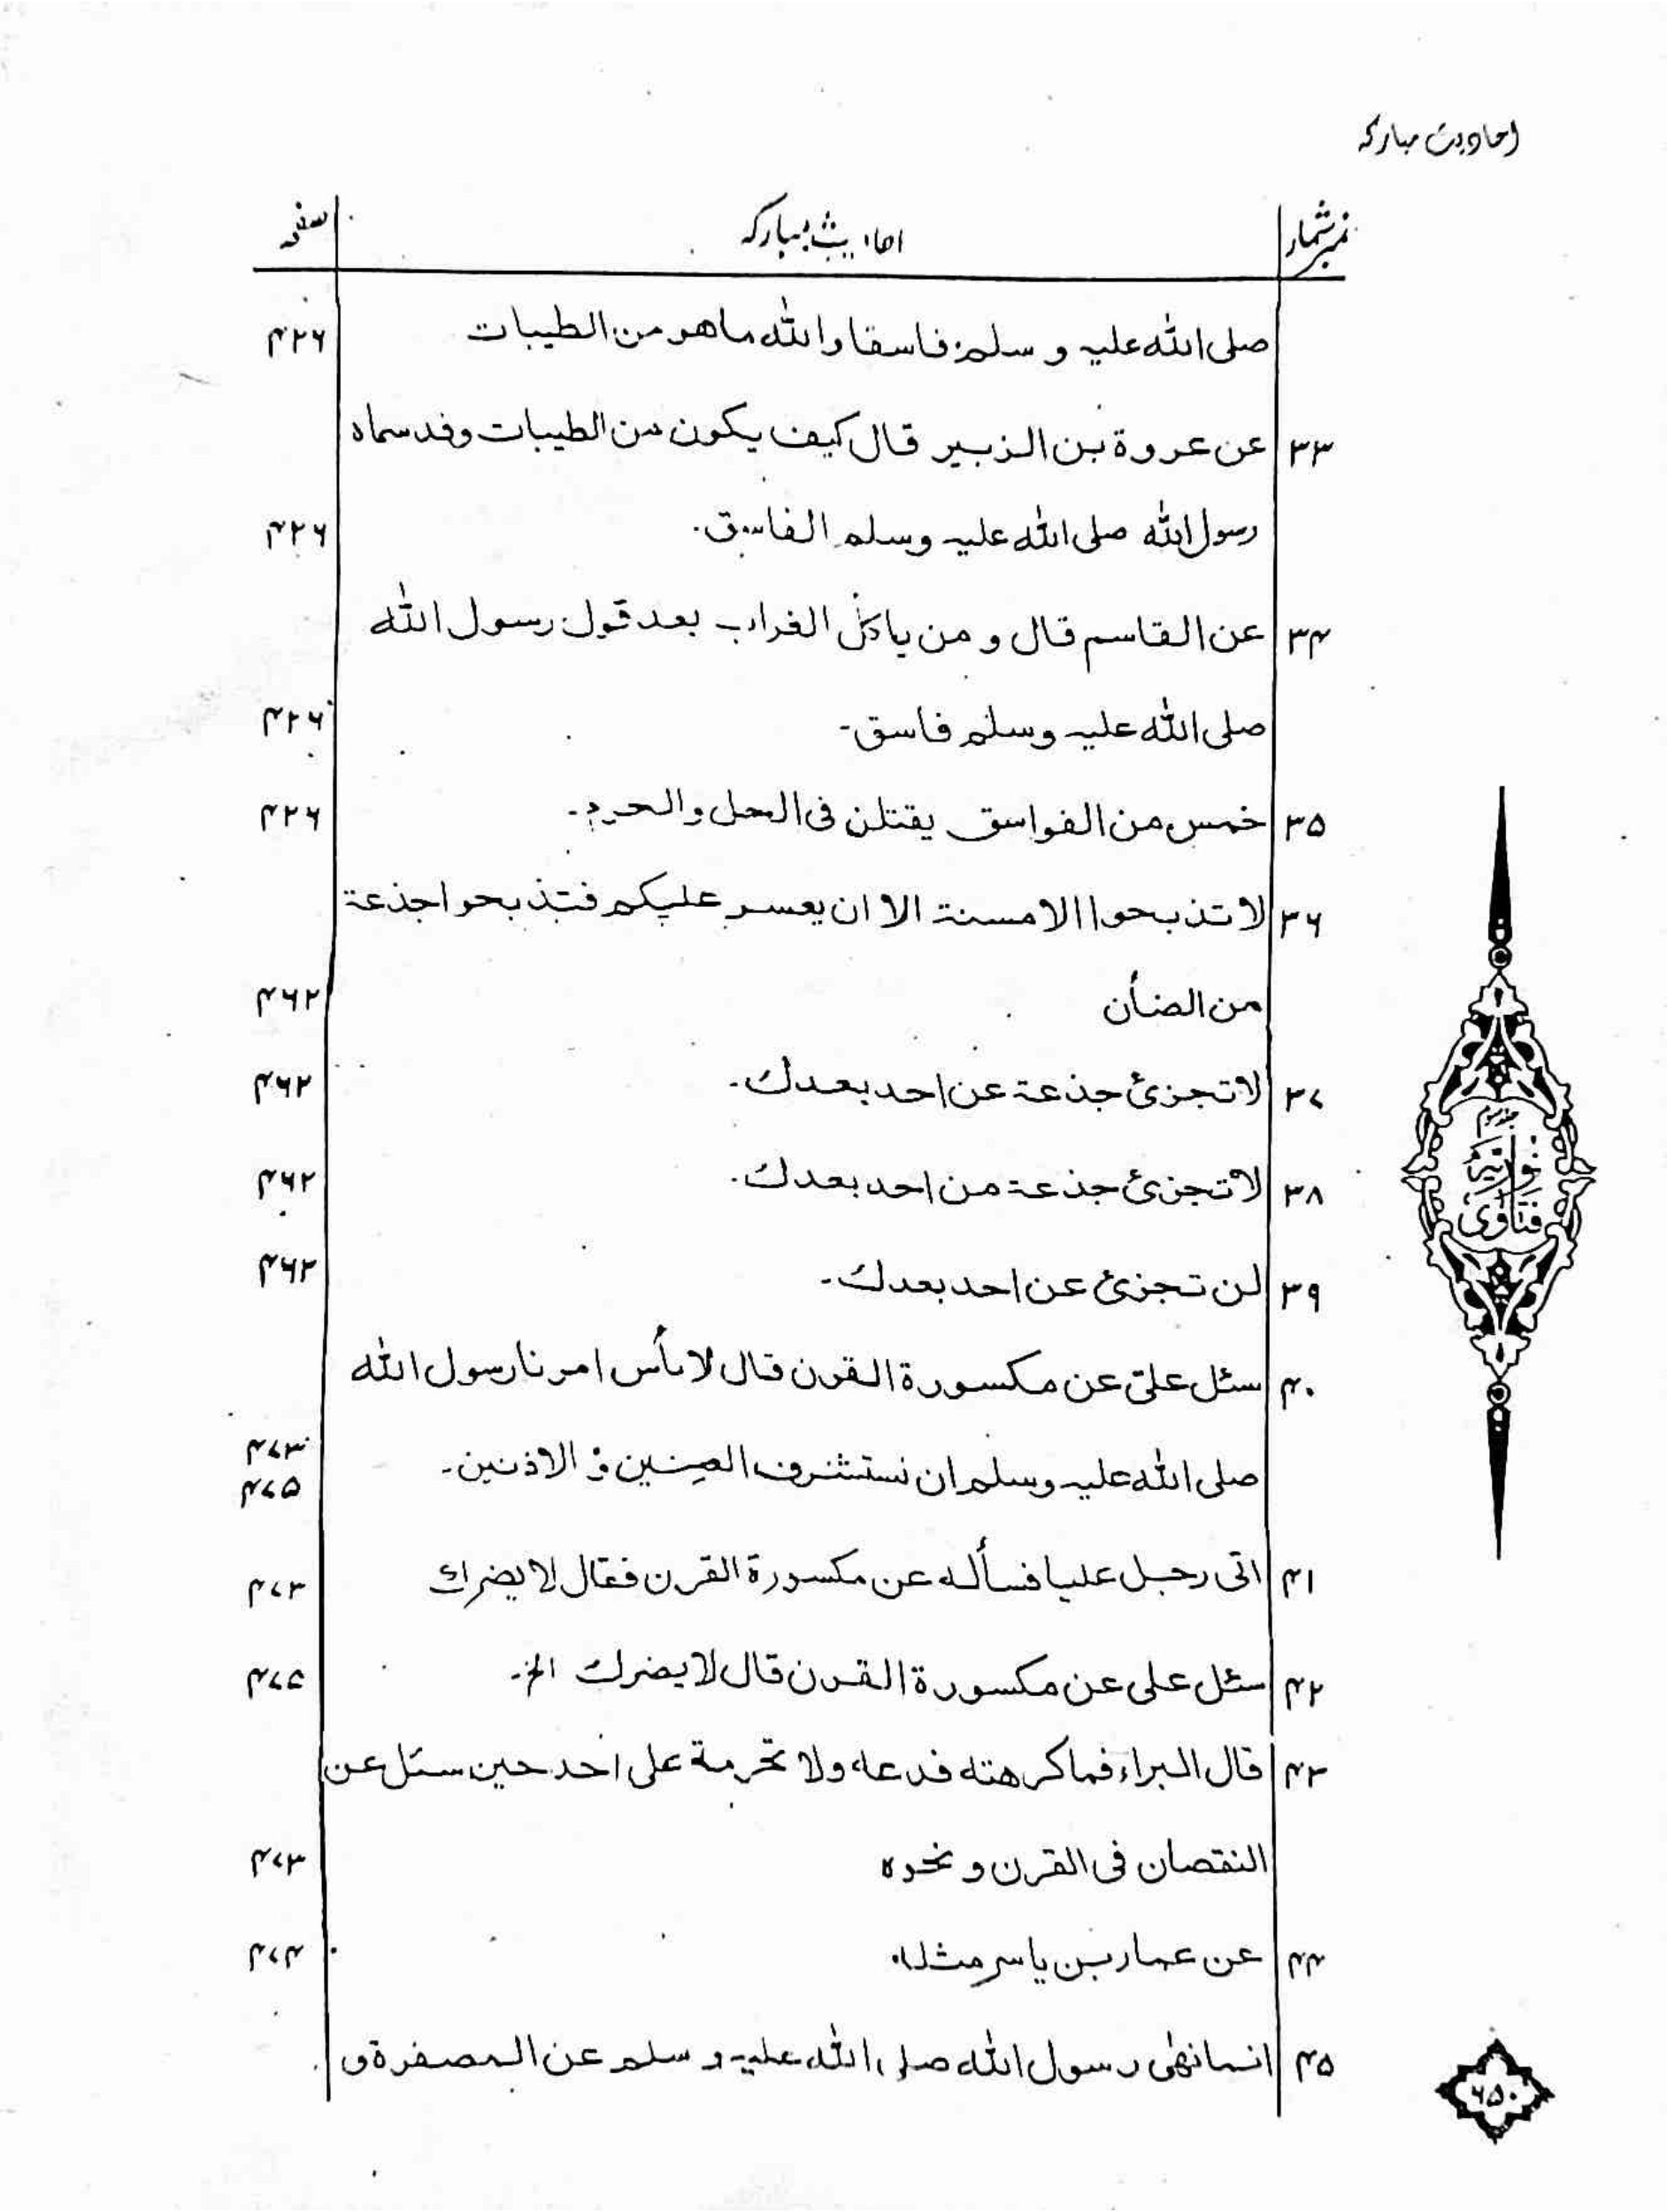 احادیث مبارکہ
نمبر شمار احادیث مبارکہ صفحہ
صلی اللہ علیہ و سلم فاسقا واللہ ماھو من الطیبات ۴۲۶
۳۳ عن عروة بن الزبیر قال کیف یکون من الطیبات وقد سماہ
رسول اللہ صلی اللہ علیہ وسلم الفاسق۔ ۴۲۶
۳۴ عن القاسم قال و من یاکل الغراب بعد قول رسول اللہ
صلی اللہ علیہ وسلم فاسق۔ ۴۲۶
۳۵ خمس من الفواسق یقتلن فی الحل والحرم۔ ۴۲۶
۳۶ لا تذبحوا الا مسنة الا ان یعسر علیکم فتذبحوا جذعة
من الضأن ۴۶۲
۳۷ لا تجزئ جذعة عن احد بعدك۔ ۴۶۲
۳۸ لا تجزئ جذعة من احد بعدك۔ ۴۶۲
۳۹ لن تجزئ عن احد بعدك۔ ۴۶۲
۴۰ سئل علیّ عن مکسورة القرن قال لا بأس امرنا رسول اللہ
صلی اللہ علیہ وسلم ان نستشرف العینین و الاذنین۔ ۴۷۳
۴۷۵
۴۱ اتی رجل علیا فسأله عن مکسورة القرن فقال لا یضرك ۴۷۳
۴۲ سئل علی عن مکسورة القرن قال لا یضرك الخ۔ ۴۷۵
۴۳ قال البراء فما کرهته فدعه ولا تحرمة علی احد حین سئل عن
النقصان فی القرن و نحوہ ۴۷۳
۴۴ عن عمار بن یاسر مثله ۴۷۴
۴۵ انما نهٰی رسول اللہ صلی اللہ علیہ و سلم عن المصفرة و
جلد سوم
فتاوی نوریہ
۶۵۰